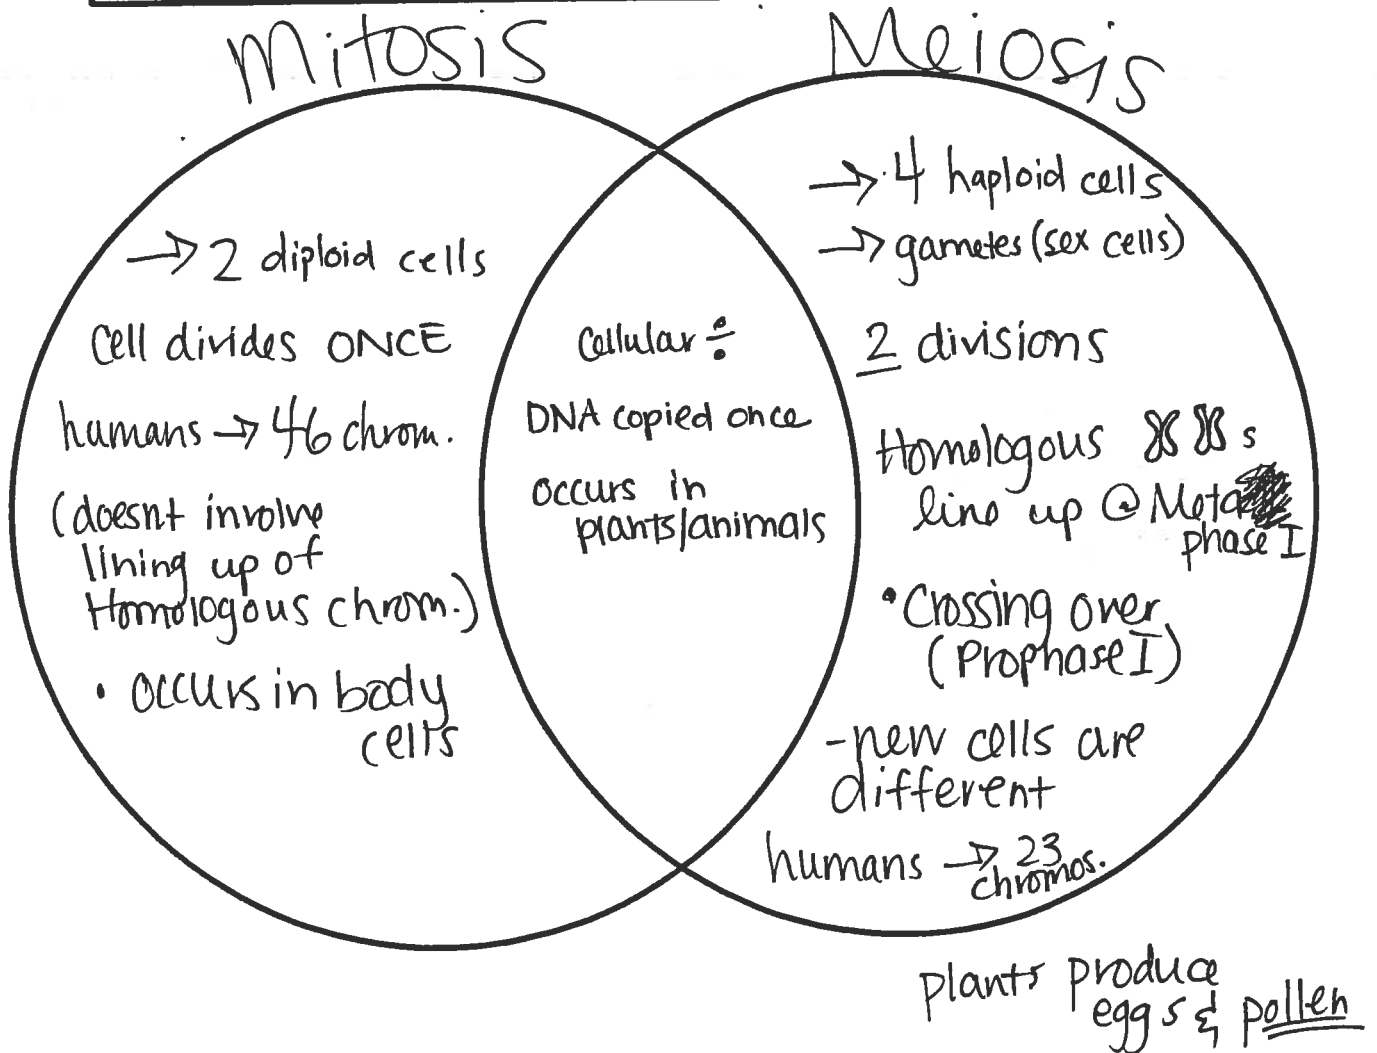 Mitosis
Meiosis
→ 2 diploid cells
Cell divides ONCE
humans → 46 chrom.
(doesnt involve
lining up of
Homologous chrom.)
• occurs in body
cells
Cellular ÷
DNA copied once
occurs in
plants/animals
→ 4 haploid cells
→ gametes (sex cells)
2 divisions
Homologous s
line up @ Meta
phase I
• Crossing over
(Prophase I)
- new cells are
different
humans → 23
chromos.
plants produce
eggs & pollen